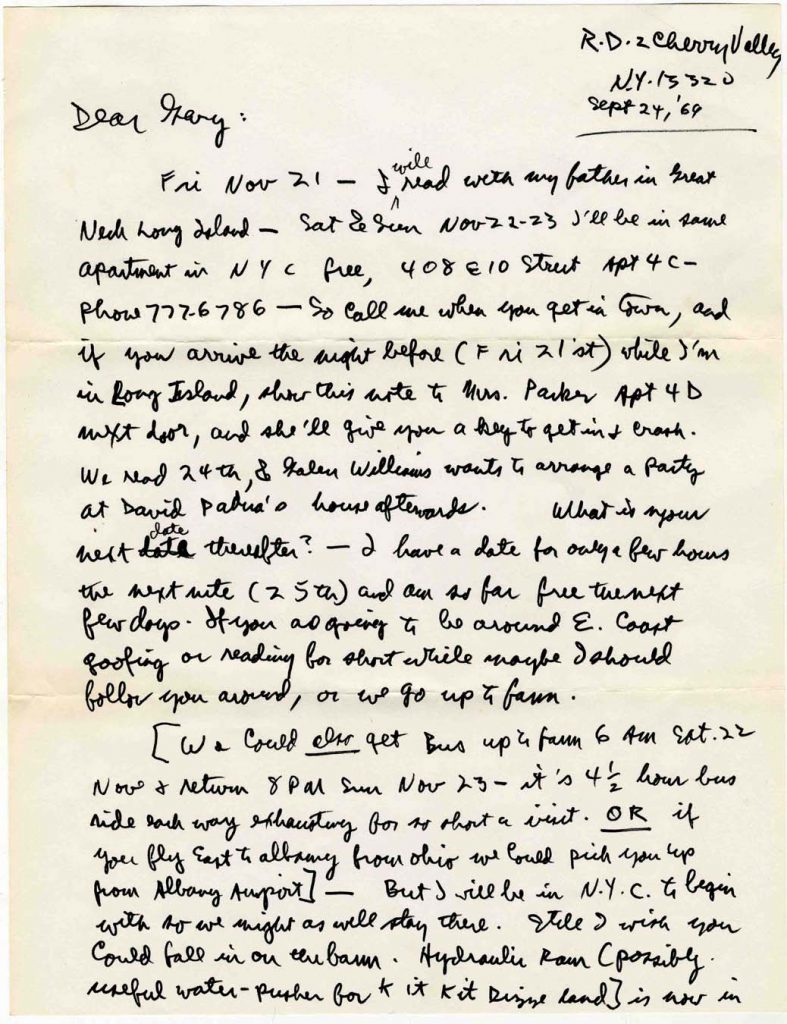 R.D. 2 Cherry Valley
N.Y. 13320
Sept 24, '69
Dear Gary:
Fri Nov 21 — I will read with my father in Great
Neck Long Island — Sat & Sun Nov 22-23 I'll be in same
apartment in N Y C free, 408 E 10 Street Apt 4C —
Phone 777-6786 — So call me when you get in town, and
if you arrive the night before (Fri 21'st) while I'm
in Long Island, show this note to Mrs. Parker Apt 4D
next door, and she'll give you a key to get in & crash.
We read 24th, & Galen Williams wants to arrange a party
at David Padua's house afterwards. What is your
next date thereafter? — I have a date for only a few hours
the next nite (25th) and am so far free the next
few days. If you ao going to be around E. Coast
goofing or reading for short while maybe I should
follow you around, or we go up to farm.
[We could also get Bus up to farm 6 AM Sat. 22
Nov & return 8 PM Sun Nov 23 — it's 4½ hour bus
ride each way exhausting for so short a visit. OR if
you fly East to Albany from Ohio we could pick you up
from Albany Airport] — But I will be in N.Y.C. to begin
with so we might as well stay there. Still I wish you
could fall in on the farm. Hydraulic Ram (possibly
useful water-pusher for Kit Kit Dizze land] is now in